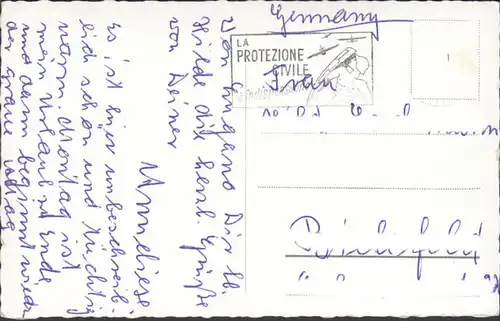 Germany
LA
PROTEZIONE
CIVILE
Frau
Bielefeld
Von Lugano Dir lb.
Hilde die herzl. Grüße
von Deiner
Anneliese
Es ist hier unbeschreib-
lich schön und tüchtig
warm. Montag ist
mein Urlaub zu Ende
und dann beginnt wieder
der graue Alltag